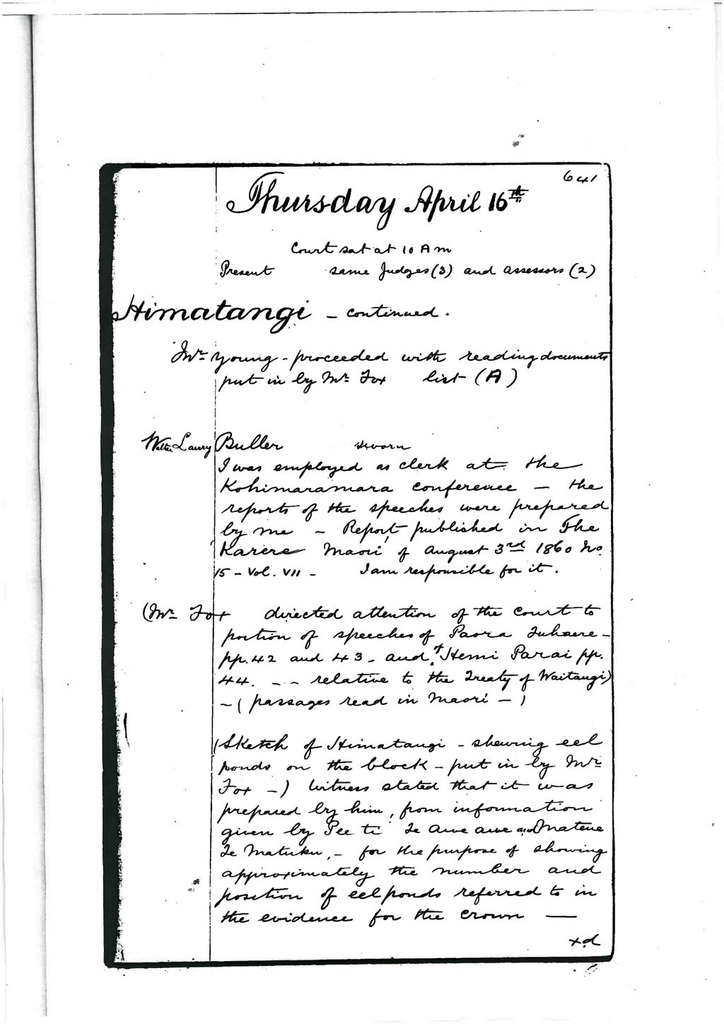 641
Thursday April 16th
Court sat at 10 A m
Present same Judges (3) and assessors (2)
Himatangi - continued.
Mr Young - proceeded with reading documents
put in by Mr Fox list (A)
Walter Lawry Buller sworn
I was employed as clerk at the
Kohimaramara conference - the
reports of the speeches were prepared
by me - Report published in The
Karere Maori of August 3rd 1860 No
15 - Vol. VII - I am responsible for it.
(Mr Fox directed attention of the court to
portion of speeches of Paora Tuhaere -
pp. 42 and 43 - and of Hemi Parai pp.
44. - - relative to the Treaty of Waitangi)
- ( passages read in Maori - )
(Sketch of Himatangi - shewing eel
ponds on the block - put in by Mr
Fox - ) Witness stated that it was
prepared by him, from information
given by Pee ti Te Awe awe and Matene
Te Matuku, - for the purpose of showing
approximately the number and
position of eel ponds referred to in
the evidence for the crown —
xd